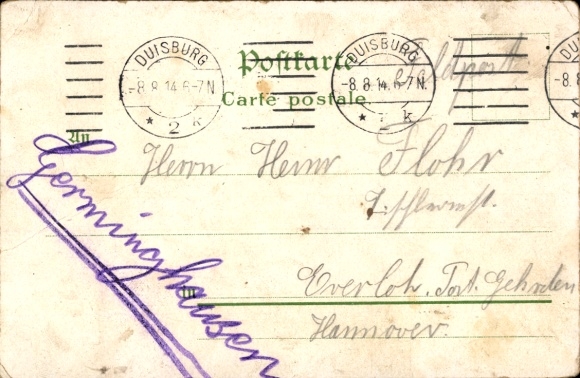 DUISBURG
-8.8.14.6-7N
* 2 k
DUISBURG
-8.8.14.6-7N.
* k
-8.8
*
Postkarte
Feldpost
Carte postale
An
Herrn Heinr Flohr
Tischlermst.
in
Everloh. Post. Gehrden
Hannover.
Germinghausen